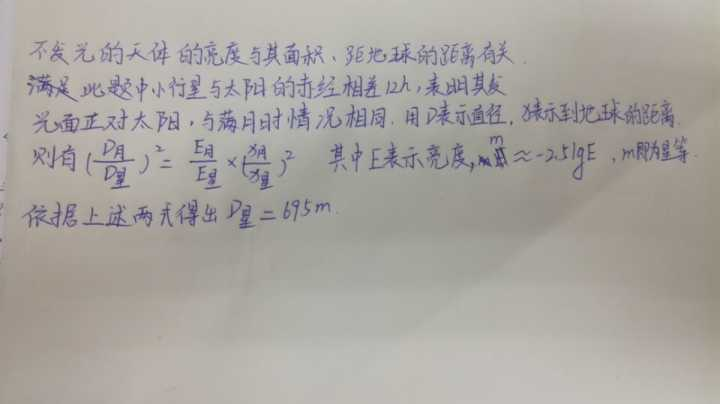 不发光的天体的亮度与其面积、距地球的距离有关.
满足此题中小行星与太阳的赤经相差12h,表明其发
光面正对太阳,与满月时情况相同.用D表示直径,x表示到地球的距离
则有(D月/D星)²=E月/E星×(x月/x星)² 其中E表示亮度,m≈-2.5lgE,m即为星等.
依据上述两式得出D星=695m.